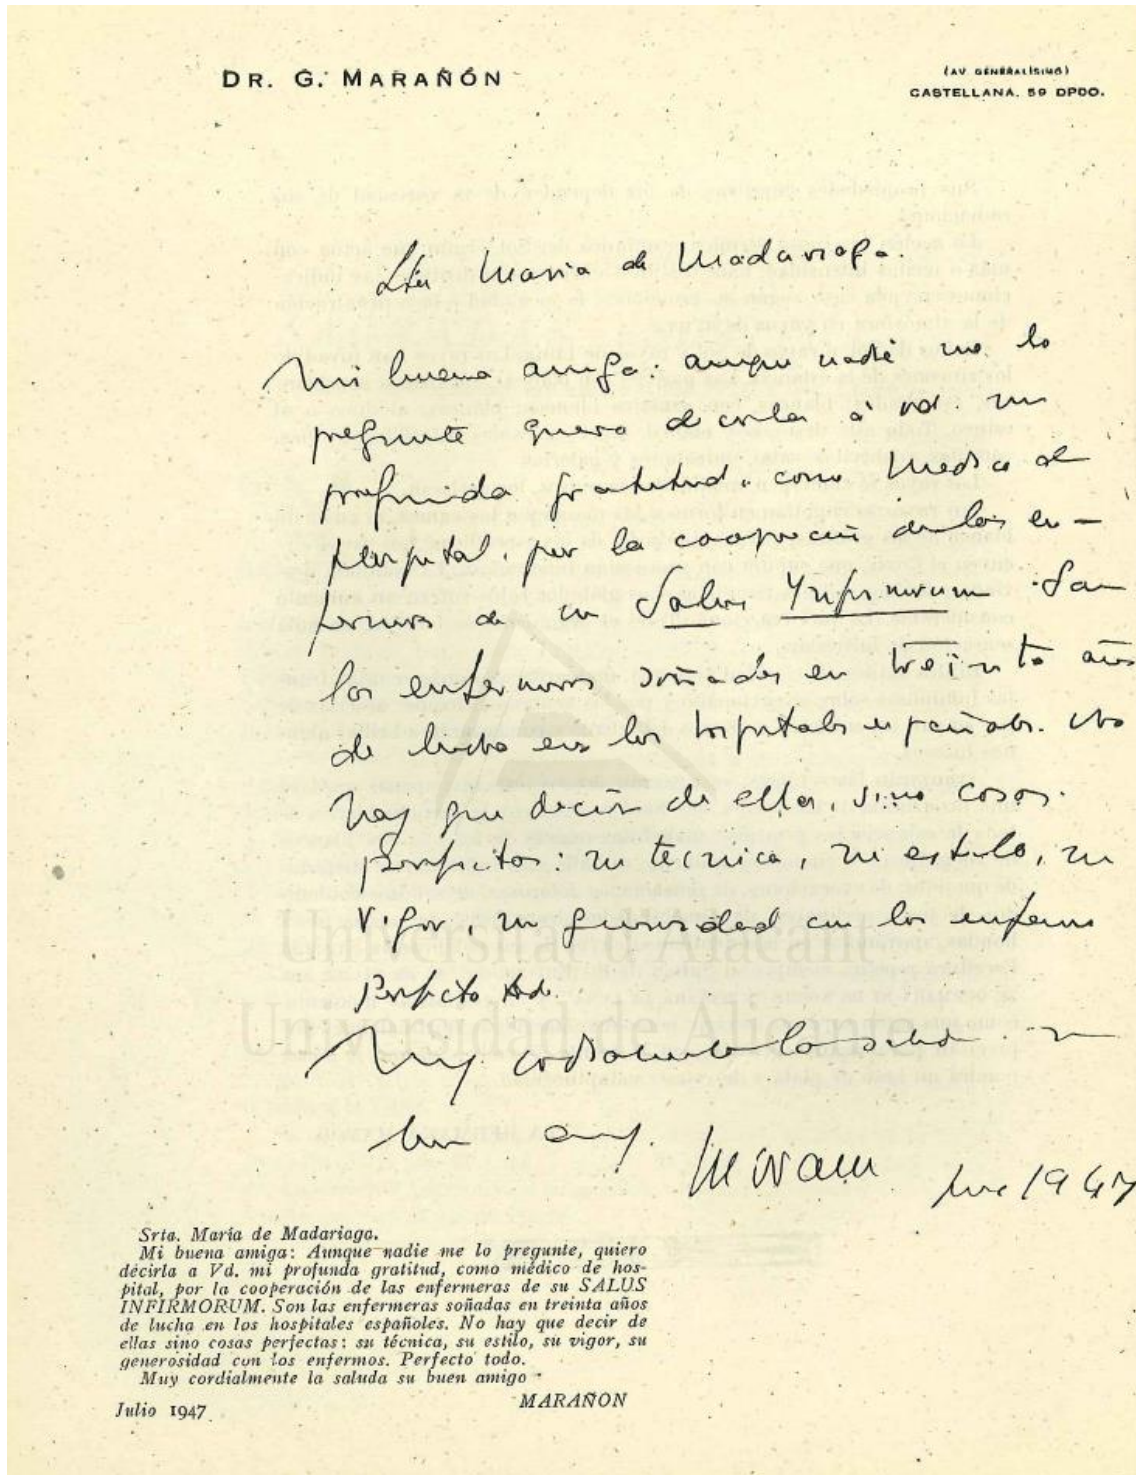 DR. G. MARAÑÓN
(AV. GENERALÍSIMO)
CASTELLANA. 59 DPDO.
Srta Maria de Madariaga.
Mi buena amiga: aunque nadie me lo
pregunte quiero decirla á vd. mi
profunda gratitud, como medico de
Hospital, por la cooperación de las en-
fermeras de su Salus Infirmorum. Son
las enfermeras soñadas en treinta años
de lucha en los hospitales españoles. No
hay que decir de ellas, sino cosas
perfectas: su tecnica, su estilo, su
vigor, su generosidad con los enfermos
Perfecto todo.
Muy cordialmente la saluda su
buen amigo.
Marañon 1947
Universitat d'Alacant
Universidad de Alicante
Srta. María de Madariaga.
Mi buena amiga: Aunque nadie me lo pregunte, quiero
décirla a Vd. mi profunda gratitud, como médico de hos-
pital, por la cooperación de las enfermeras de su SALUS
INFIRMORUM. Son las enfermeras soñadas en treinta años
de lucha en los hospitales españoles. No hay que decir de
ellas sino cosas perfectas: su técnica, su estilo, su vigor, su
generosidad con los enfermos. Perfecto todo.
Muy cordialmente la saluda su buen amigo
MARAÑON
Julio 1947